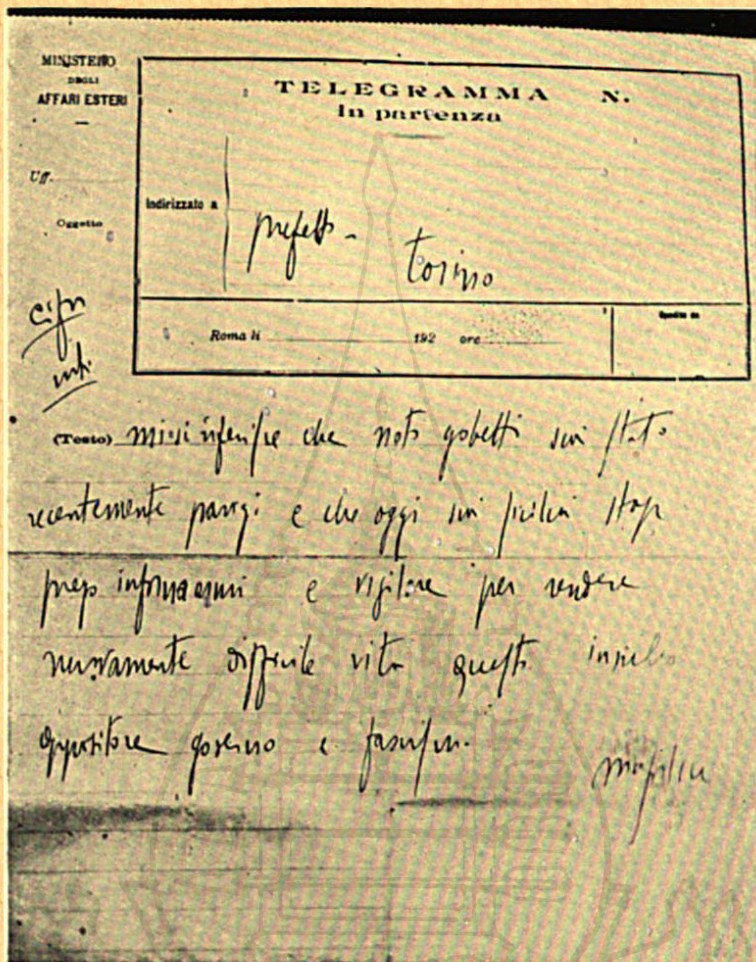 MINISTERO
DEGLI
AFFARI ESTERI
TELEGRAMMA N.
In partenza
Uff.
Oggetto
Indirizzato a
prefetto - torino
cifra
Roma li 192 ore
Spedito ore
(Testo) mi si riferisce che noto gobetti sia stato
recentemente parigi e che oggi sia sicilia stop
prego informarmi e vigilare per rendere
nuovamente difficile vita questo insulso
oppositore governo e fascismo.
mussolini